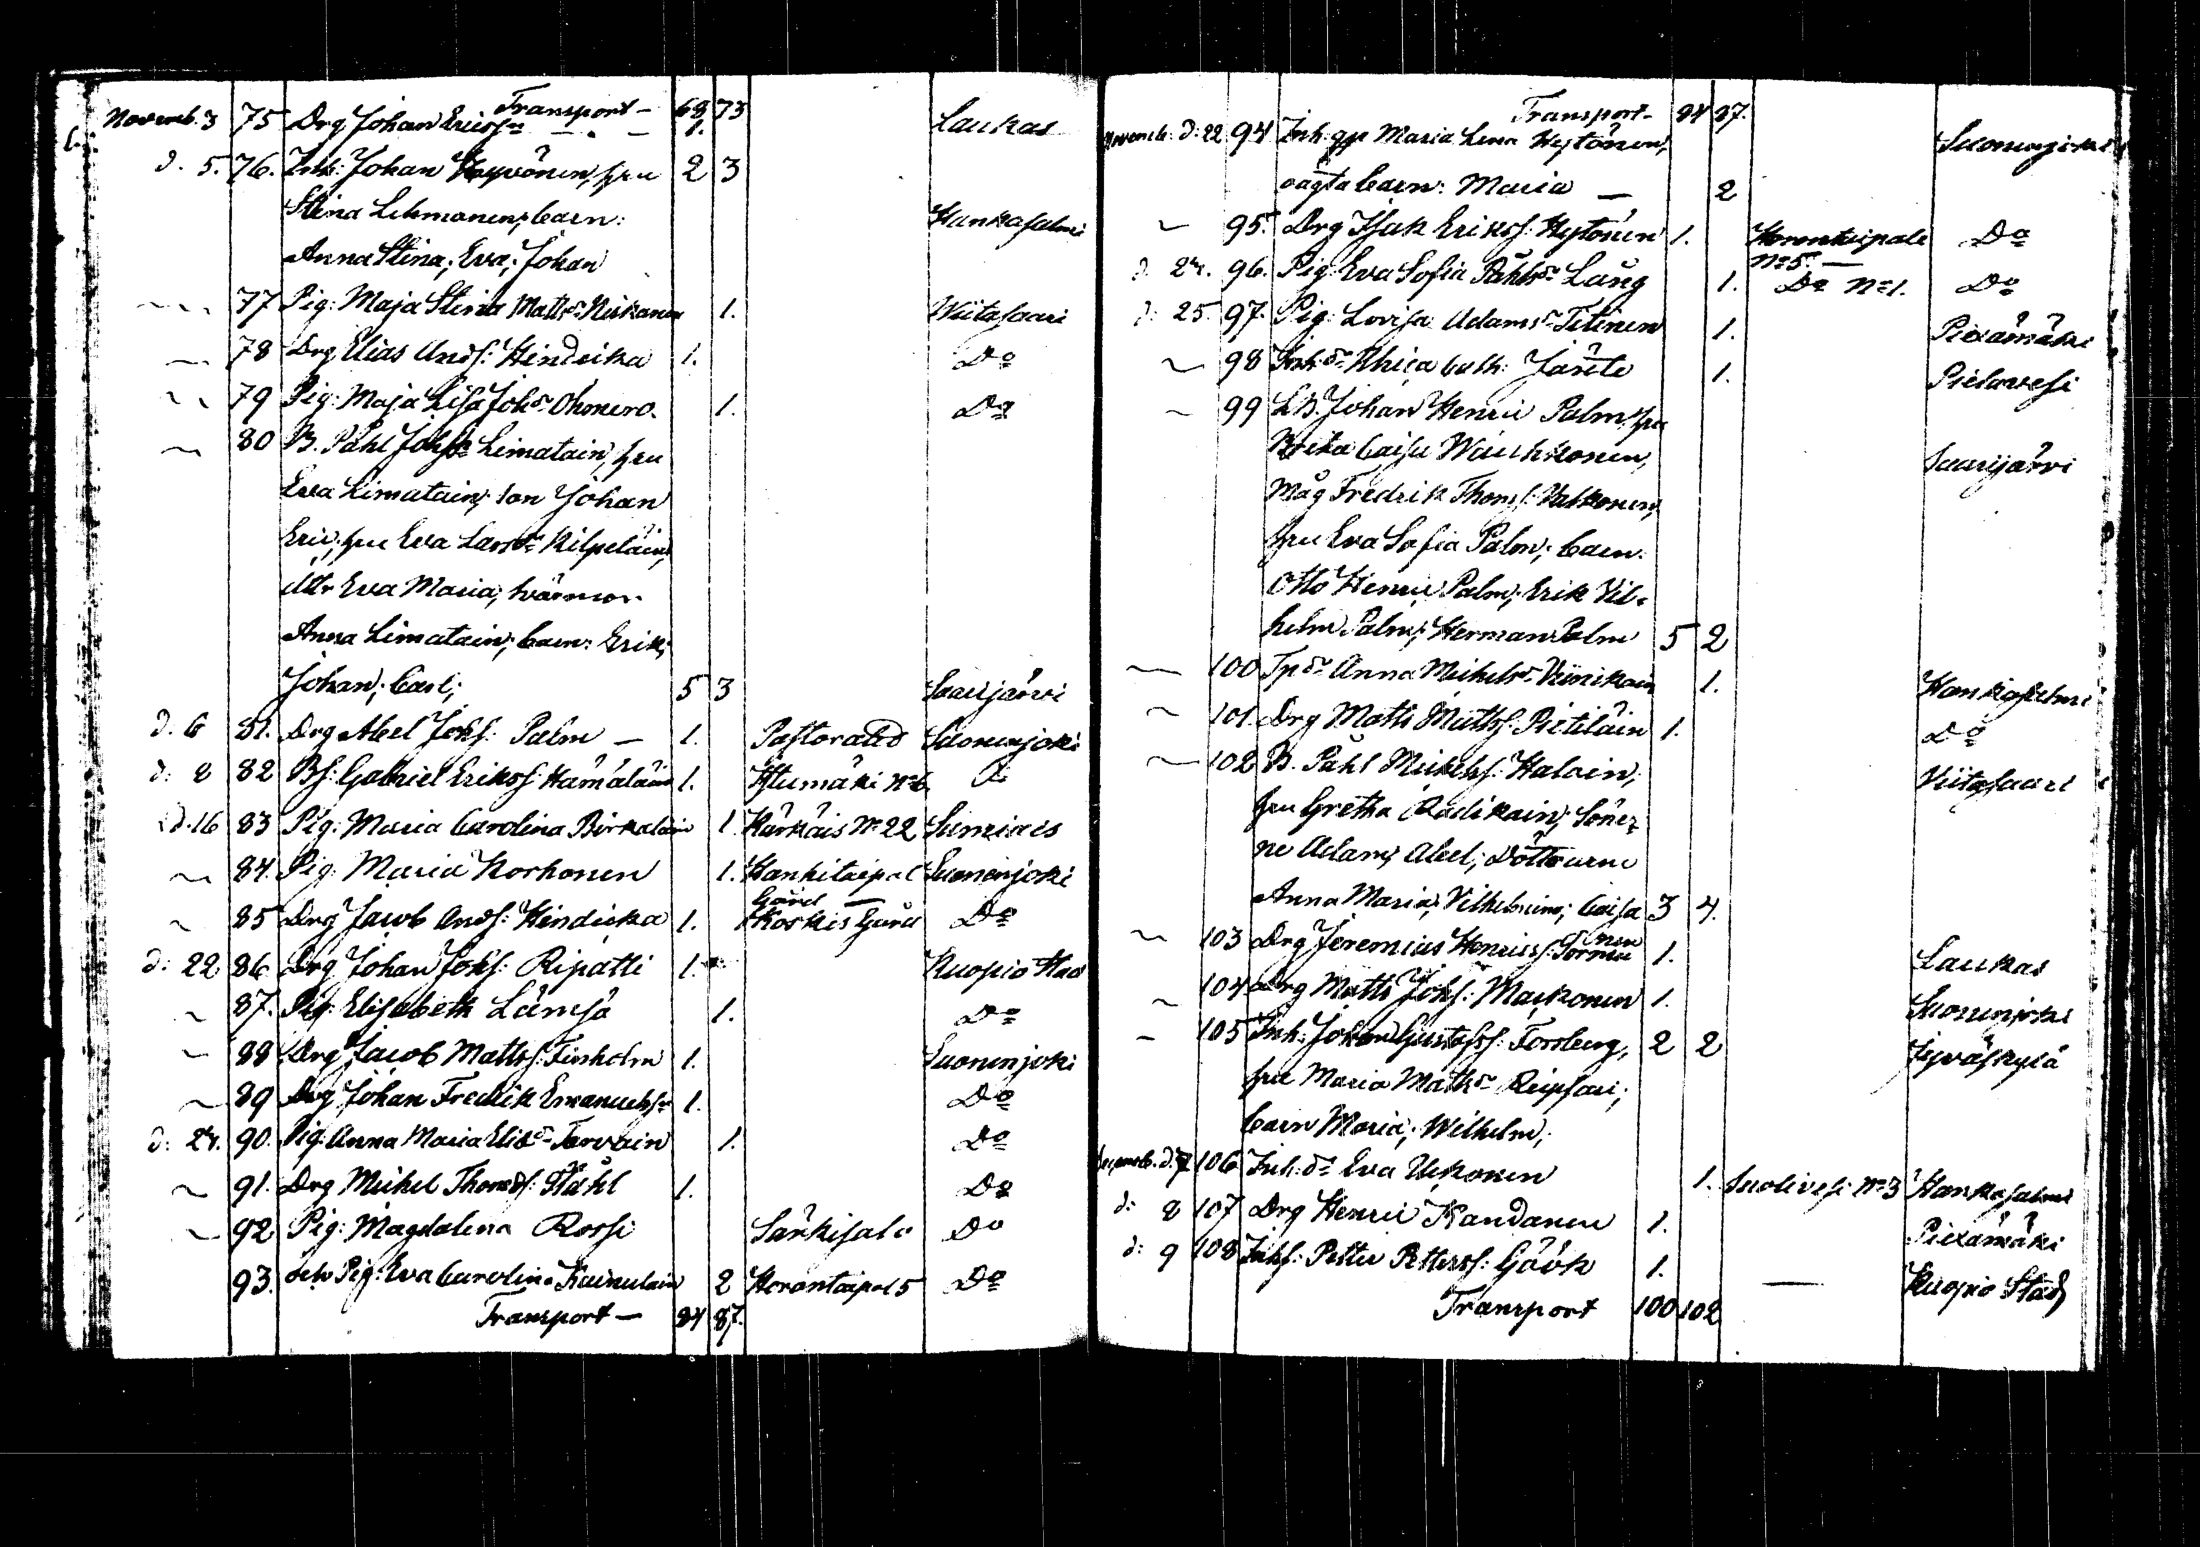 Transport — 68 73
Novemb. 3 75 Drg Johan Ericssn — 1. Laukas
d. 5. 76. Inh: Johan Hyvönen, hru 2 3
Stina Lehmonen; barn: Hankasalmi
Anna Stina; Eva; Johan
77 Pig: Maja Stina Mattsdr Niskanen 1. Wiitasaari
78 Drg Elias Ands: Hindrika 1. Do
79 Pig: Maja Lisa Johsdr 1. Do
80 B. Påhl Johss Limatain, hru
Eva Limatain; son Johan
Eric; hru Eva Larsdr Kilpeläin;
dottr Eva Maria; svärmor
Anna Limatain; barn: Erik;
Johan; Carl; 5 3 Saarijärvi
d. 6 81. Drg Abel Johs: Palm — 1. Pastoratet Suonenjoki
d: 8 82 Bs: Gabriel Erikss: Hämäläin 1. No 6 Do
d. 16 83 Pig: Maria Carolina Pirkalain 1. Kärkäis No 22 Sumiais
84. Pig: Maria Korhonen 1. Hankitaipal Suonenjoki
Gård —
85 Drg Jacob Ands: Hindrika 1. Koskis Gård Do
d: 22 86 Drg Johan Johs: Ripatti 1. Kuopio Stad
87. Pig: Elisabeth Lämsä 1. Do
88 Drg Jacob Matts: Finholm 1. Suonenjoki
89 Drg Johan Fredrik Emanuelss 1. Do
d: 24. 90. Pig: Anna Maria Eliedr Tarvain 1. Do
91. Drg Michel Thomas: Ståhl 1. Do
92 Pig: Magdalena Rossi Särkisalo Do
93. och Pig: Eva Carolina Kainulain 2 Horontaipal 5 Do
Transport — 84 87.
Transport — 84 87.
Novemb: d: 22 94 Inh: Maria Lena Hytönen, Suonenjoki
oägta barn: Maria — 2
95. Drg Isak Erikss: Hytönen 1. Horontaipale Do
No 5. —
d. 24. 96. Pig: Eva Sofia Påhlsdr Lång 1. Do No 1. Do
d: 25. 97. Pig: Lovisa Adamsdr Titinen 1. Piexämäki
98 Inh:dr Ulrica Cath: Jänte 1. Pielavesi
99 Johan Henric Palm, hru
Brita Caisa Wauhkonen, Saarijärvi
Måg Fredrik Thoms: Valkonen,
hru Eva Sofia Palm; barn:
Otto Henric Palm; Erik Vil-
helm Palm; Herman Palm 5 2
100 Anna Michelsdr Viinikain 1. Hankasalmi
101. Drg Matts Matts: Pietiläin 1. Do
102 B. Påhl Michels: Halain, Viitasaari
hru Gretha Radikain; Söner-
ne Adam; Abel; Döttrarne
Anna Maria; Vilhelmina; Caisa 3 4.
103 Drg Jeremias Henrics: Tormanen 1. Laukas
104 Drg Matts Johs: Markonen 1. Suonenjoki
105 Inh: Johan Gustafss: Forsberg, 2 2 Jyväskylä
hru Maria Mathsdr Reipsari;
barn Maria; Wilhelm;
Decemb. d. 7 106 Inh:dr Eva Ukkonen 1. Suolivesi No 3 Hankasalmi
d: 8 107 Drg Henric Kandanen 1. Piexämäki
d: 9 108 Inhs: Petter Petters: Göök 1. — Kuopio Stad
Transport 100 102